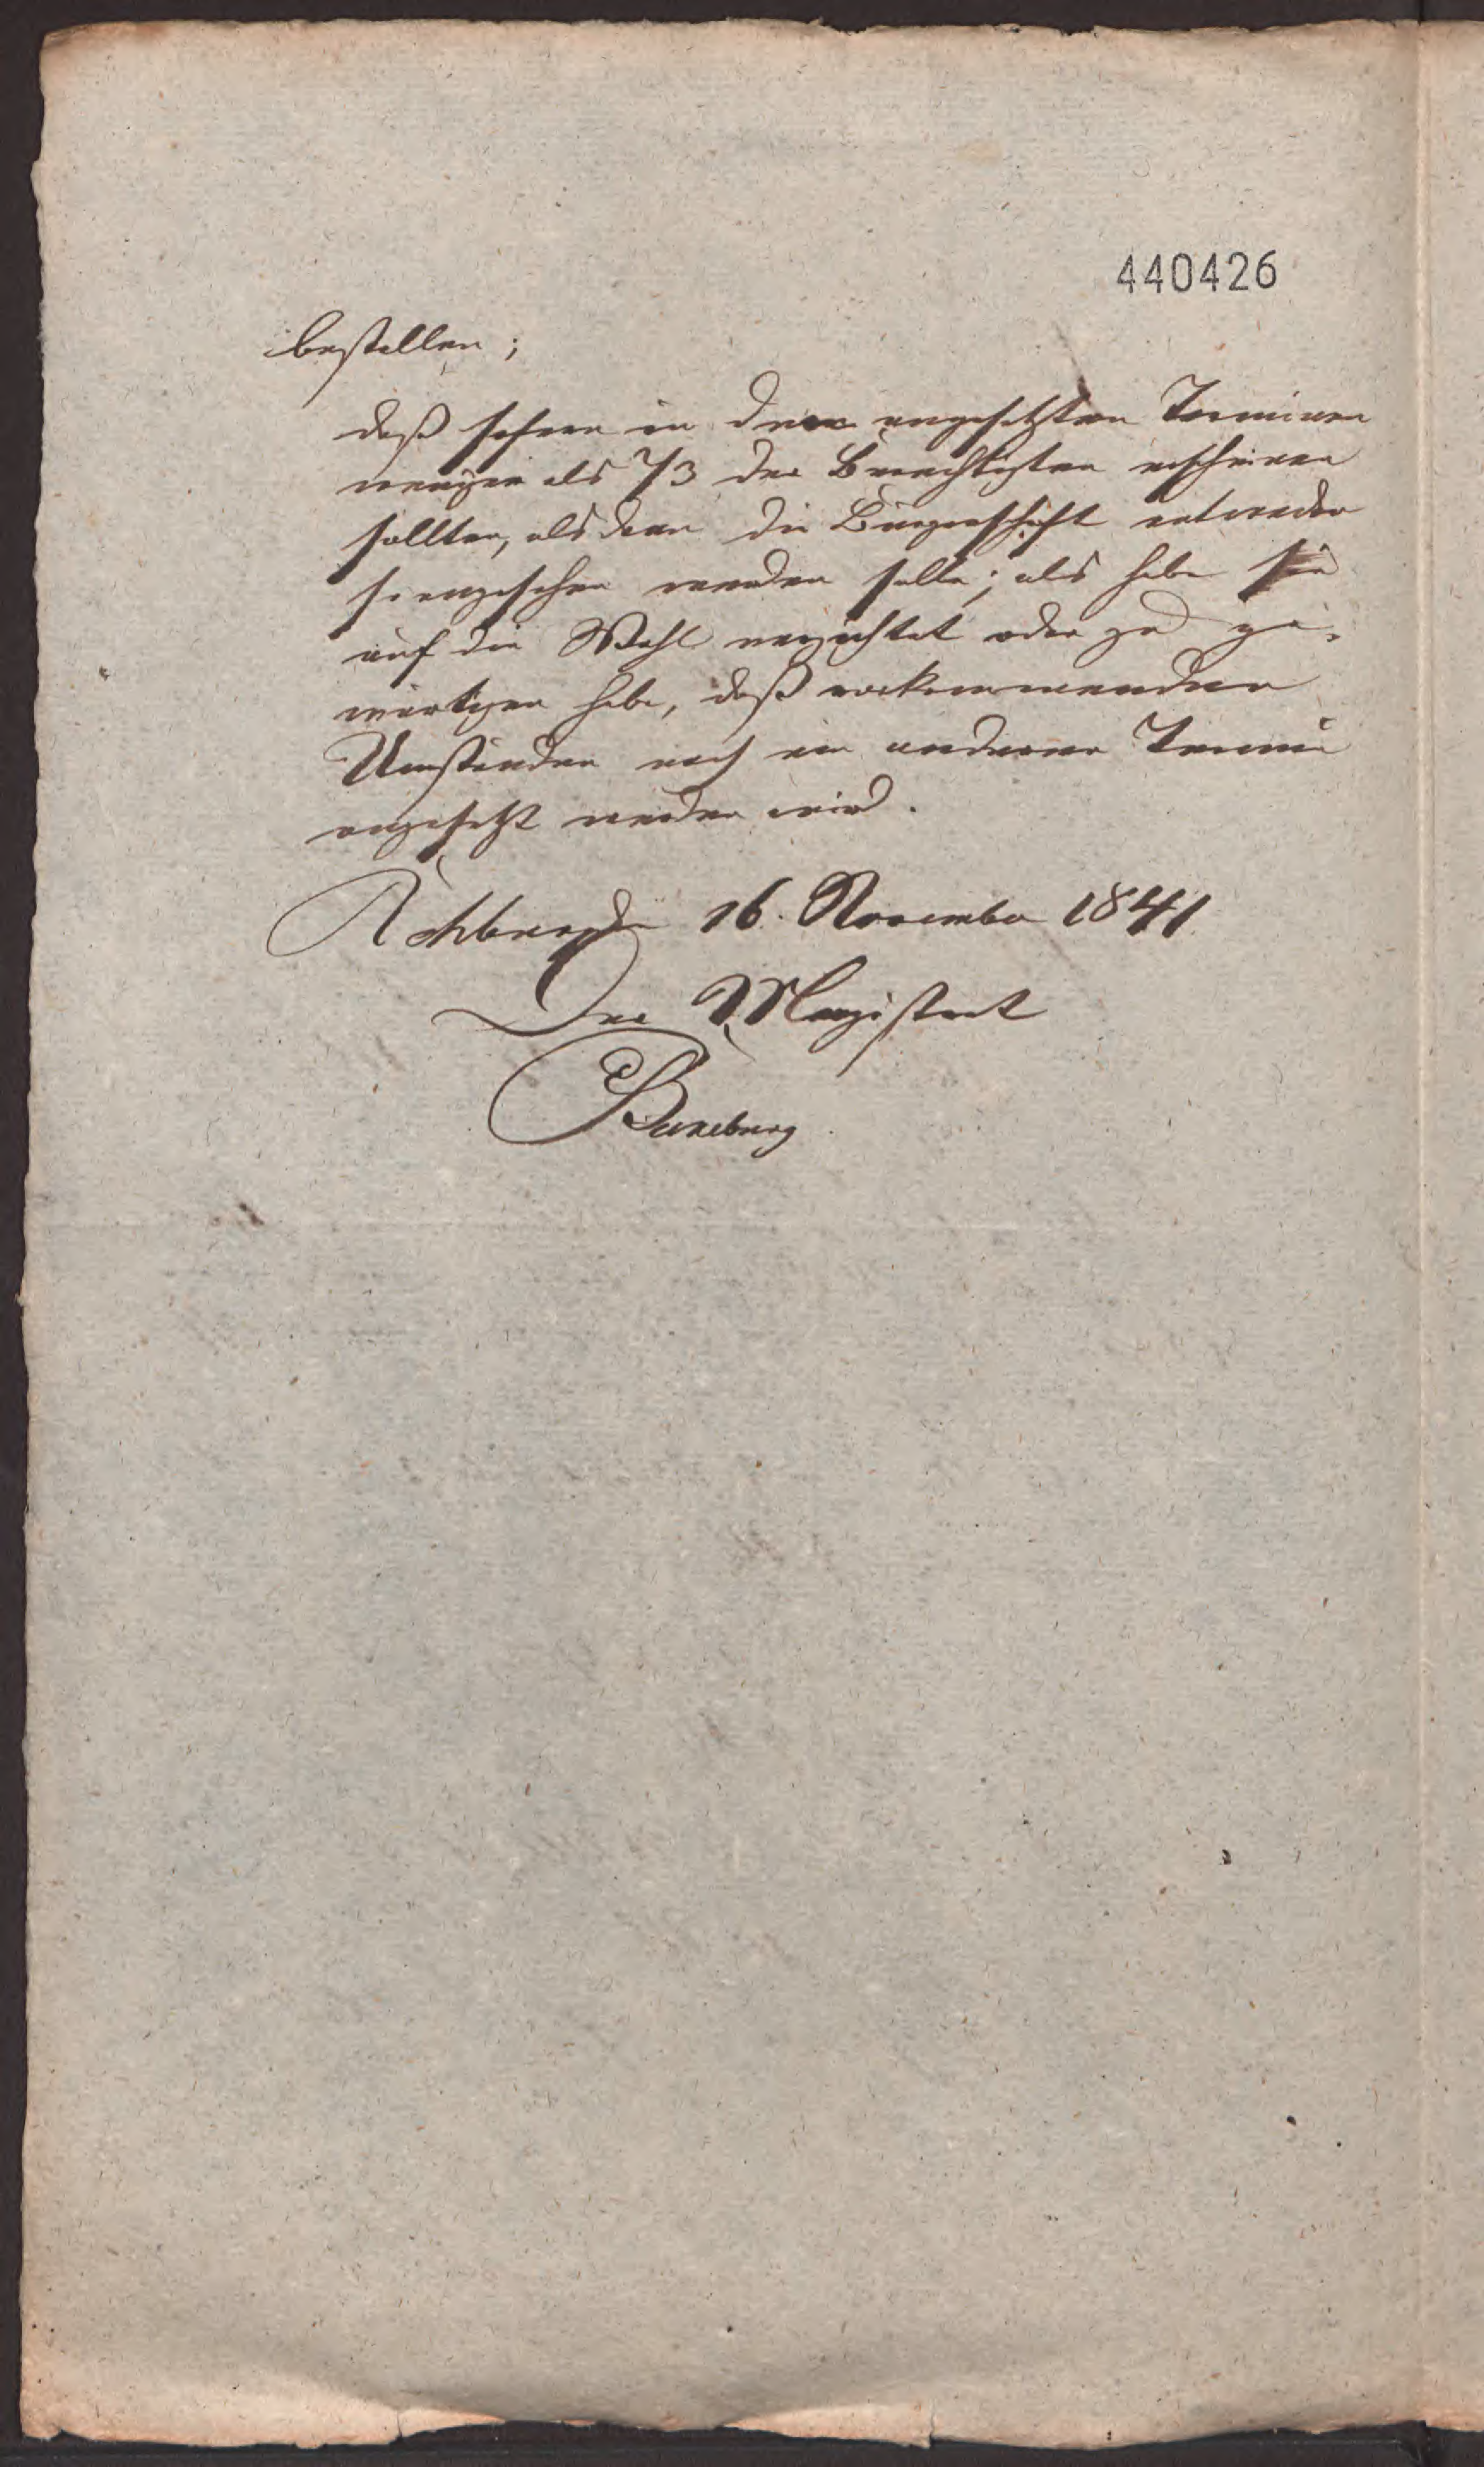 440426
bestellen;
daß sofern in dem angesetzten Terminen
weniger als 2/3 der Berechtigten erscheinen
sollten, als dann die Bürgerschaft entweder
so angesehen werden solle, als habe sie
auf die Wahl verzichtet oder zu ge-
wärtigen habe, daß vorkommenden
Umständen nach ein anderer Termin
angesetzt werden wird.
16. November 1841
Der Magistrat